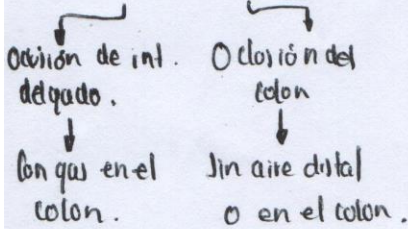 Oclusión de int.
delgado.
Con gas en el
colon.
Oclosión del
colon
Sin aire distal
o en el colon.